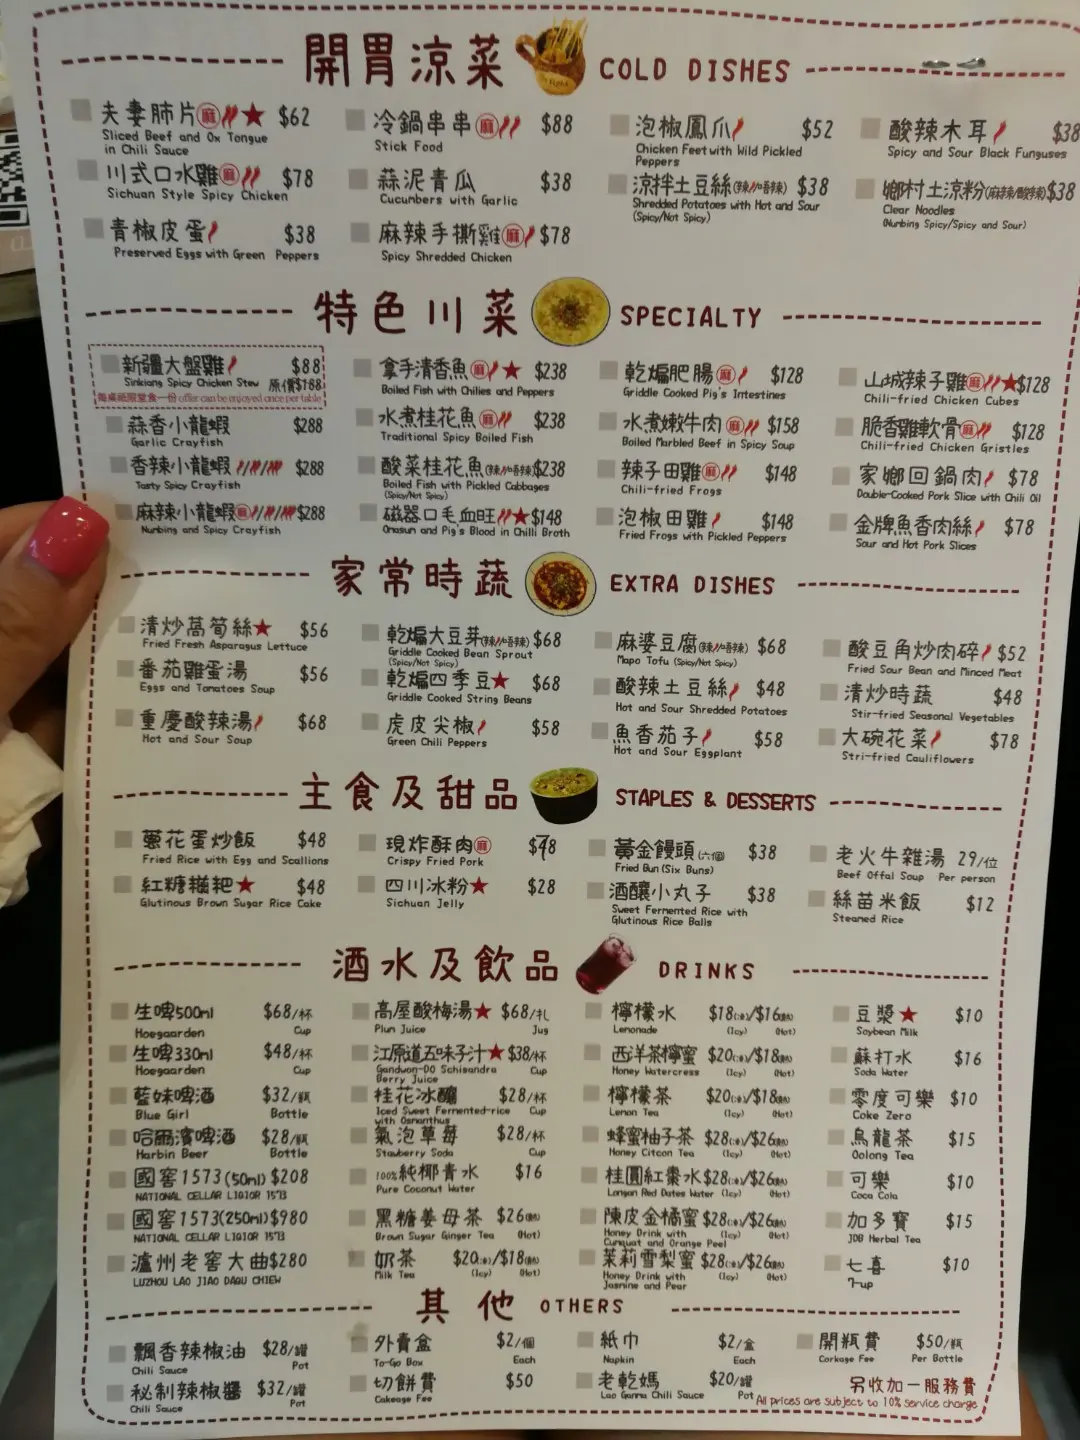 開胃涼菜 COLD DISHES
夫妻肺片 麻 ★ $62
Sliced Beef and Ox Tongue
in Chili Sauce
冷鍋串串 麻 $88
Stick Food
泡椒鳳爪 $52
Chicken Feet with Wild Pickled
Peppers
酸辣木耳 $38
Spicy and Sour Black Funguses
川式口水雞 麻 $78
Sichuan Style Spicy Chicken
蒜泥青瓜 $38
Cucunbers with Garlic
涼拌土豆絲(辣/唔辣) $38
Shredded Potatoes with Hot and Sour
(Spicy/Not Spicy)
鄉村土涼粉(麻辣/酸辣) $38
Clear Noodles
(Nunbing Spicy/Spicy and Sour)
青椒皮蛋 $38
Preserved Eggs with Green Peppers
麻辣手撕雞 麻 $78
Spicy Shredded Chicken
特色川菜 SPECIALTY
新疆大盤雞 $88
Sinkiang Spicy Chicken Stew 原價$188
每桌祇限堂食一份 offer can be enjoyed once per table
拿手清香魚 麻 ★ $238
Boiled Fish with Chilies and Peppers
乾煸肥腸 麻 $128
Griddle Cooked Pig's Intestines
山城辣子雞 麻 ★ $128
Chili-fried Chicken Cubes
蒜香小龍蝦 $288
Garlic Crayfish
水煮桂花魚 麻 $238
Traditional Spicy Boiled Fish
水煮嫩牛肉 麻 $158
Boiled Marbled Beef in Spicy Soup
脆香雞軟骨 麻 $128
Chili-fried Chicken Gristles
香辣小龍蝦 $288
Tasty Spicy Crayfish
酸菜桂花魚(辣/唔辣) $238
Boiled Fish with Pickled Cabbages
(Spicy/Not Spicy)
辣子田雞 麻 $148
Chili-fried Frogs
家鄉回鍋肉 $78
Double-Cooked Pork Slice with Chili Oil
麻辣小龍蝦 麻 $288
Nunbing and Spicy Crayfish
磁器口毛血旺 ★ $148
Omasun and Pig's Blood in Chilli Broth
泡椒田雞 $148
Fried Frogs with Pickled Peppers
金牌魚香肉絲 $78
Sour and Hot Pork Slices
家常時蔬 EXTRA DISHES
清炒萵筍絲 ★ $56
Fried Fresh Asparagus Lettuce
乾煸大豆芽(辣/唔辣) $68
Griddle Cooked Bean Sprout
(Spicy/Not Spicy)
麻婆豆腐(辣/唔辣) $68
Mapo Tofu (Spicy/Not Spicy)
酸豆角炒肉碎 $52
Fried Sour Bean and Minced Meat
番茄雞蛋湯 $56
Eggs and Tomatoes Soup
乾煸四季豆 ★ $68
Griddle Cooked String Beans
酸辣土豆絲 $48
Hot and Sour Shredded Potatoes
清炒時蔬 $48
Stir-fried Seasonal Vegetables
重慶酸辣湯 $68
Hot and Sour Soup
虎皮尖椒 $58
Green Chili Peppers
魚香茄子 $58
Hot and Sour Eggplant
大碗花菜 $78
Stri-fried Cauliflowers
主食及甜品 STAPLES & DESSERTS
蔥花蛋炒飯 $48
Fried Rice with Egg and Scallions
現炸酥肉 麻 $78
Crispy Fried Pork
黃金饅頭(六個) $38
Fried Bun(Six Buns)
老火牛雜湯 29/位
Beef Offal Soup Per person
紅糖糍粑 ★ $48
Glutinous Brown Sugar Rice Cake
四川冰粉 ★ $28
Sichuan Jelly
酒釀小丸子 $38
Sweet Fermented Rice with
Glutinous Rice Balls
絲苗米飯 $12
Steaned Rice
酒水及飲品 DRINKS
生啤500ml $68/杯
Hoegaarden Cup
高屋酸梅湯 ★ $68/扎
Plun Juice Jug
檸檬水 $18(凍)/$16(熱)
Lenonade (Icy) (Hot)
豆漿 ★ $10
Soybean Milk
生啤330ml $48/杯
Hoegaarden Cup
江原道五味子汁 ★ $38/杯
Gandwon-DO Schisandra Cup
Berry Juice
西洋茶檸蜜 $20(凍)/$18(熱)
Honey Watercress (Icy) (Hot)
蘇打水 $16
Soda Water
藍妹啤酒 $32/瓶
Blue Girl Bottle
桂花冰釀 $28/杯
Iced Sweet Fermented-rice Cup
with Osmanthus
檸檬茶 $20(凍)/$18(熱)
Lenon Tea (Icy) (Hot)
零度可樂 $10
Coke Zero
哈爾濱啤酒 $28/瓶
Harbin Beer Bottle
氣泡草莓 $28/杯
Stawberry Soda Cup
蜂蜜柚子茶 $28(凍)/$26(熱)
Honey Citcon Tea (Icy) (Hot)
烏龍茶 $15
Oolong Tea
國窖1573(50ml) $208
NATIONAL CELLAR LIQIOR 1573
100%純椰青水 $16
Pure Coconut Water
桂圓紅棗水 $28(凍)/$26(熱)
Longan Red Dates Water (Icy) (Hot)
可樂 $10
Coca Cola
國窖1573(250ml) $980
NATIONAL CELLAR LIQIOR 1573
黑糖姜母茶 $26(熱)
Brown Sugar Ginger Tea (Hot)
陳皮金橘蜜 $28(凍)/$26(熱)
Honey Drink with (Icy) (Hot)
Cumquat and Orange Peel
加多寶 $15
JDB Herbal Tea
瀘州老窖大曲 $280
LUZHOU LAO JIAO DAGU CHIEW
奶茶 $20(凍)/$18(熱)
Milk Tea (Icy) (Hot)
茉莉雪梨蜜 $28(凍)/$26(熱)
Honey Drink with (Icy) (Hot)
Jasnine and Pear
七喜 $10
7-up
其他 OTHERS
飄香辣椒油 $28/罐
Chili Sauce Pot
外賣盒 $2/個
To-Go Box Each
紙巾 $2/盒
Napkin Each
開瓶費 $50/瓶
Corkage Fee Per Bottle
秘制辣椒醬 $32/罐
Chili Sauce Pot
切餅費 $50
Cakeage Fee
老乾媽 $20/罐
Lao Ganma Chili Sauce Pot
另收加一服務費
All prices are subject to 10% service charge